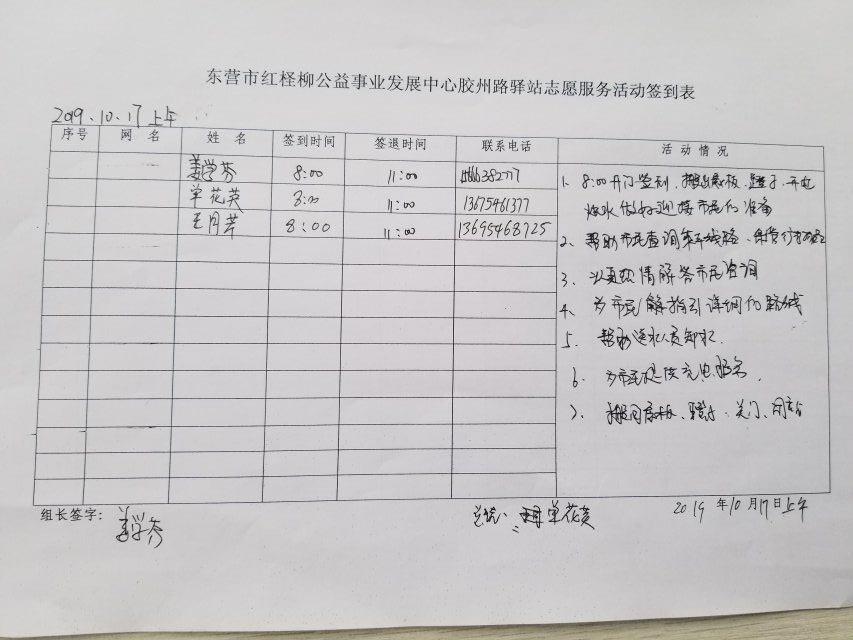 东营市红柽柳公益事业发展中心胶州路驿站志愿服务活动签到表
2019.10.17上午
序号 网名 姓名 签到时间 签退时间 联系电话 活动情况
姜学芬 8:00 11:00
单花英 8:00 11:00 13675461377
王月芹 8:00 11:00 13695468725
1. 8:00开门签到、开电
烧水做好迎接市民的准备
2、帮助市民查询乘车线路、
3、以真热情解答市民咨询
4、为市民解指引详细的路线
5. 帮助送水人员卸水.
6. 为市民提供充电服务.
7、关门、
组长签字：姜学芬
单花英
2019年10月17日上午